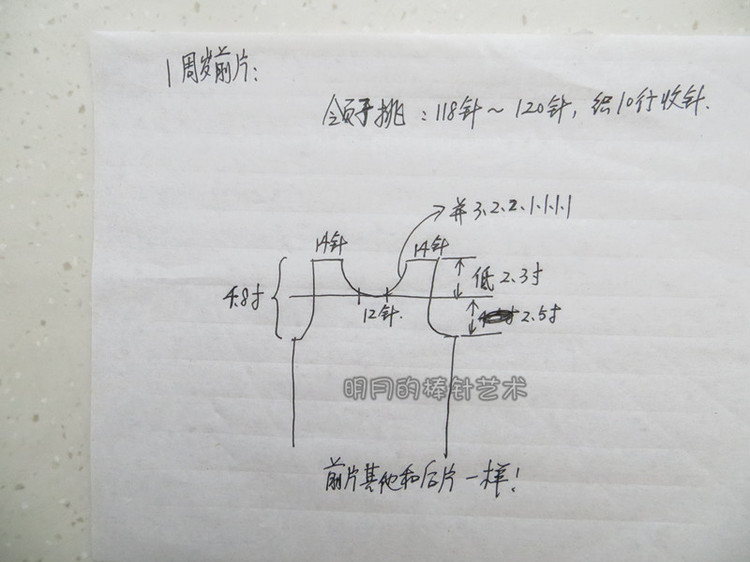 1周岁前片:
领子挑:118针~120针,织10行收针.
并3.2.2.1.1.1.1
14针
14针
4.8寸
低2.3寸
12针.
2.5寸
明月的棒针艺术
前片其他和后片一样!